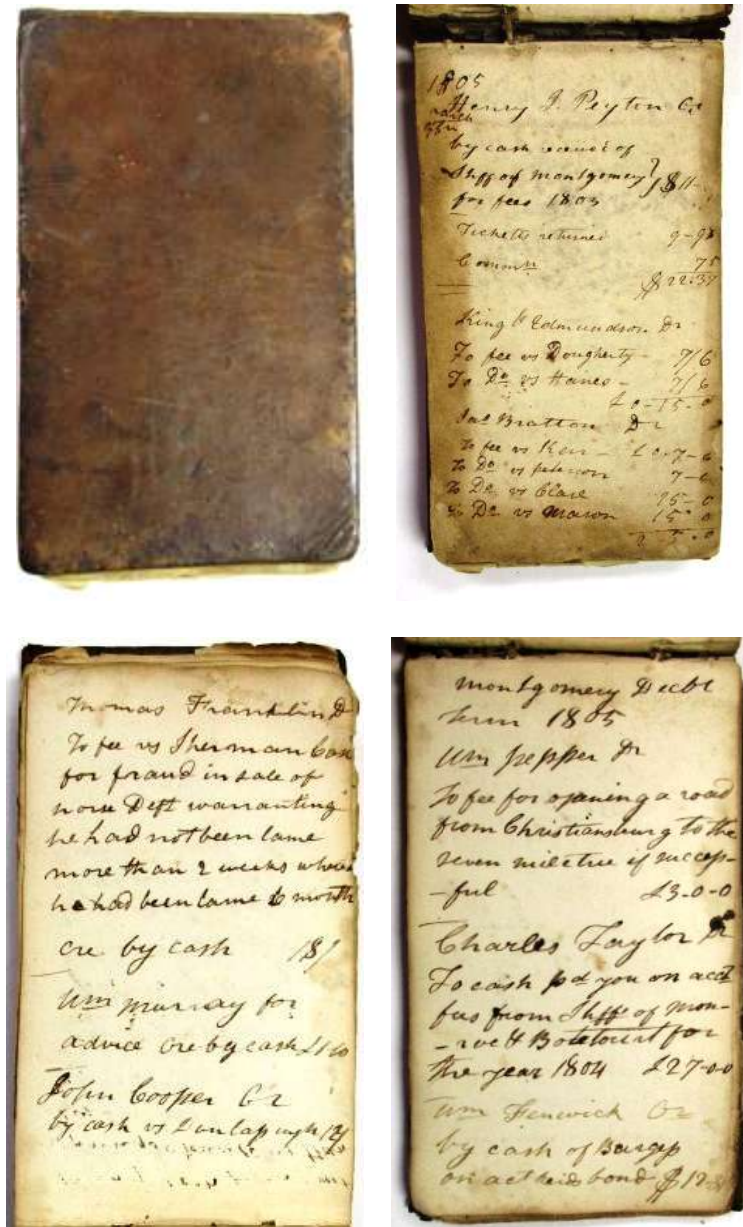 1805
Henry J. Peyton Cr
by cash receiv'd of
Shff of Montgomery
for fees 1803
Ticketts returned
Commn 75
$22.37
King & Edmundson Dr
To fee vs Dougherty - 7/6
To Do vs Hanes - 7/6
£0-15-0
Jas Bratton Dr
To fee vs Kerr - £0-7-6
To Do vs Peterson 7-6
To Do vs Clare 15-0
To Do vs Mason 15-0
2 5-0
Thomas Franklin D
To fee vs Sherman Case
for fraud in sale of
horse Deft warranting
he had not been lame
more than 2 weeks where
he had been lame 6 month
Cre by cash 18/
Wm Murray for
advice Cre by cash
John Cooper Cr
by cash vs Dunlap
Montgomery Decbr
Term 1805
Wm Pepper Dr
To fee for opening a road
from Christiansburg to the
seven mile tree if success-
-ful £3-0-0
Charles Taylor Dr
To cash pd you on acct
fees from Shffs of Mon-
-roe & Botetourt for
the year 1804 £27-0-0
Wm Fenwick Cr
by cash of Burgess
on act his bond